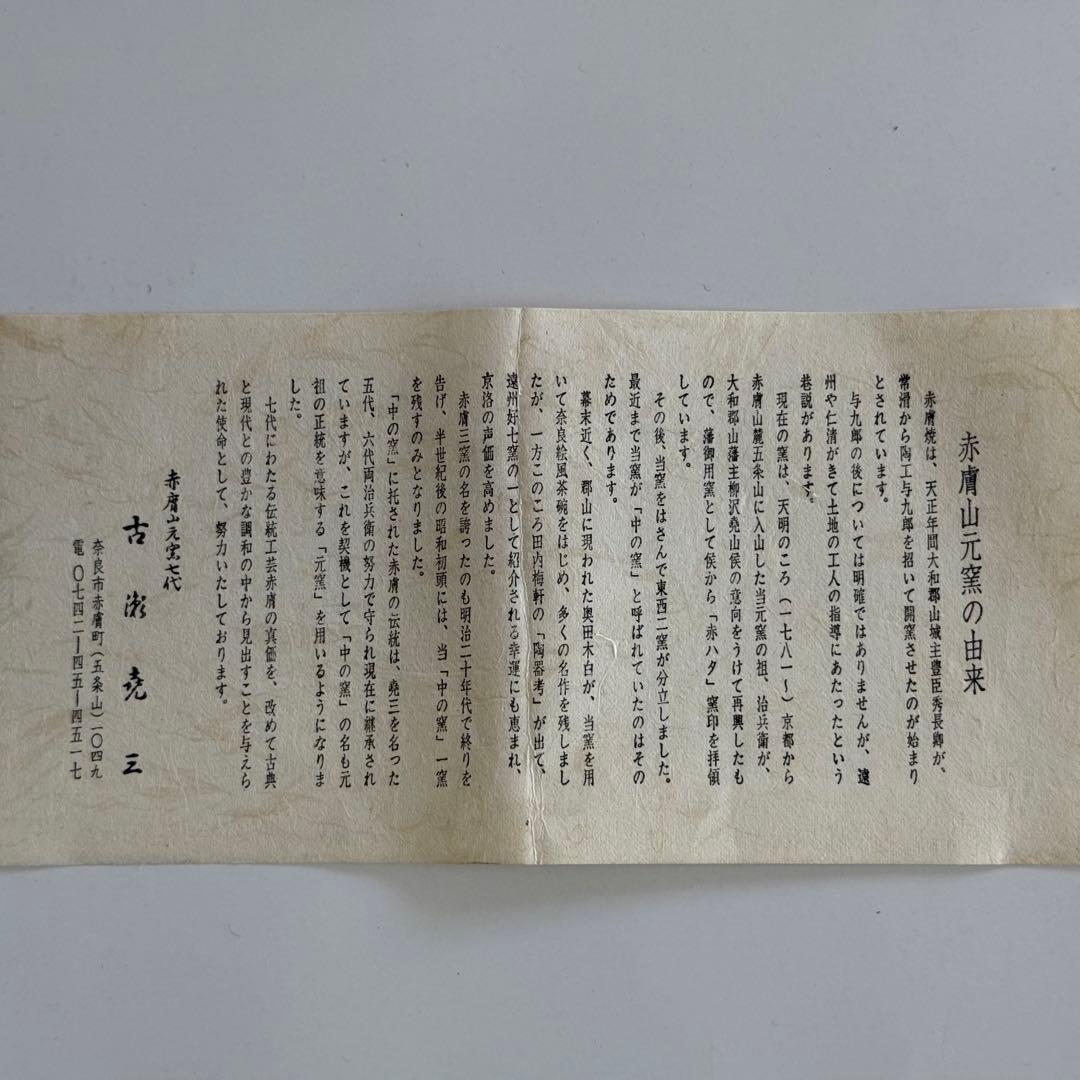 赤膚山元窯の由来
赤膚焼は、天正年間大和郡山城主豊臣秀長卿が、
常滑から陶工与九郎を招いて開窯させたのが始まり
とされています。
与九郎の後については明確ではありませんが、遠
州や仁清がきて土地の工人の指導にあたったという
巷説があります。
現在の窯は、天明のころ(一七八一〜)京都から
赤膚山麓五条山に入山した当元窯の祖、治兵衛が、
大和郡山藩主柳沢堯山侯の意向をうけて再興したも
ので、藩御用窯として侯から「赤ハタ」窯印を拝領
しています。
その後、当窯をはさんで東西二窯が分立しました。
最近まで当窯が「中の窯」と呼ばれていたのはその
ためであります。
幕末近く、郡山に現われた奥田木白が、当窯を用
いて奈良絵風茶碗をはじめ、多くの名作を残しまし
たが、一方このころ田内梅軒の「陶器考」が出て、
遠州好七窯の一として紹介される幸運にも恵まれ、
京洛の声価を高めました。
赤膚三窯の名を誇ったのも明治二十年代で終りを
告げ、半世紀後の昭和初頭には、当「中の窯」一窯
を残すのみとなりました。
「中の窯」に托された赤膚の伝統は、堯三を名った
五代、六代両治兵衛の努力で守られ現在に継承され
ていますが、これを契機として「中の窯」の名も元
祖の正統を意味する「元窯」を用いるようになりま
した。
七代にわたる伝統工芸赤膚の真価を、改めて古典
と現代との豊かな調和の中から見出すことを与えら
れた使命として、努力いたしております。
赤膚山元窯七代
古瀬堯三
奈良市赤膚町(五条山)一〇四九
電 〇七四二ー四五ー四五一七